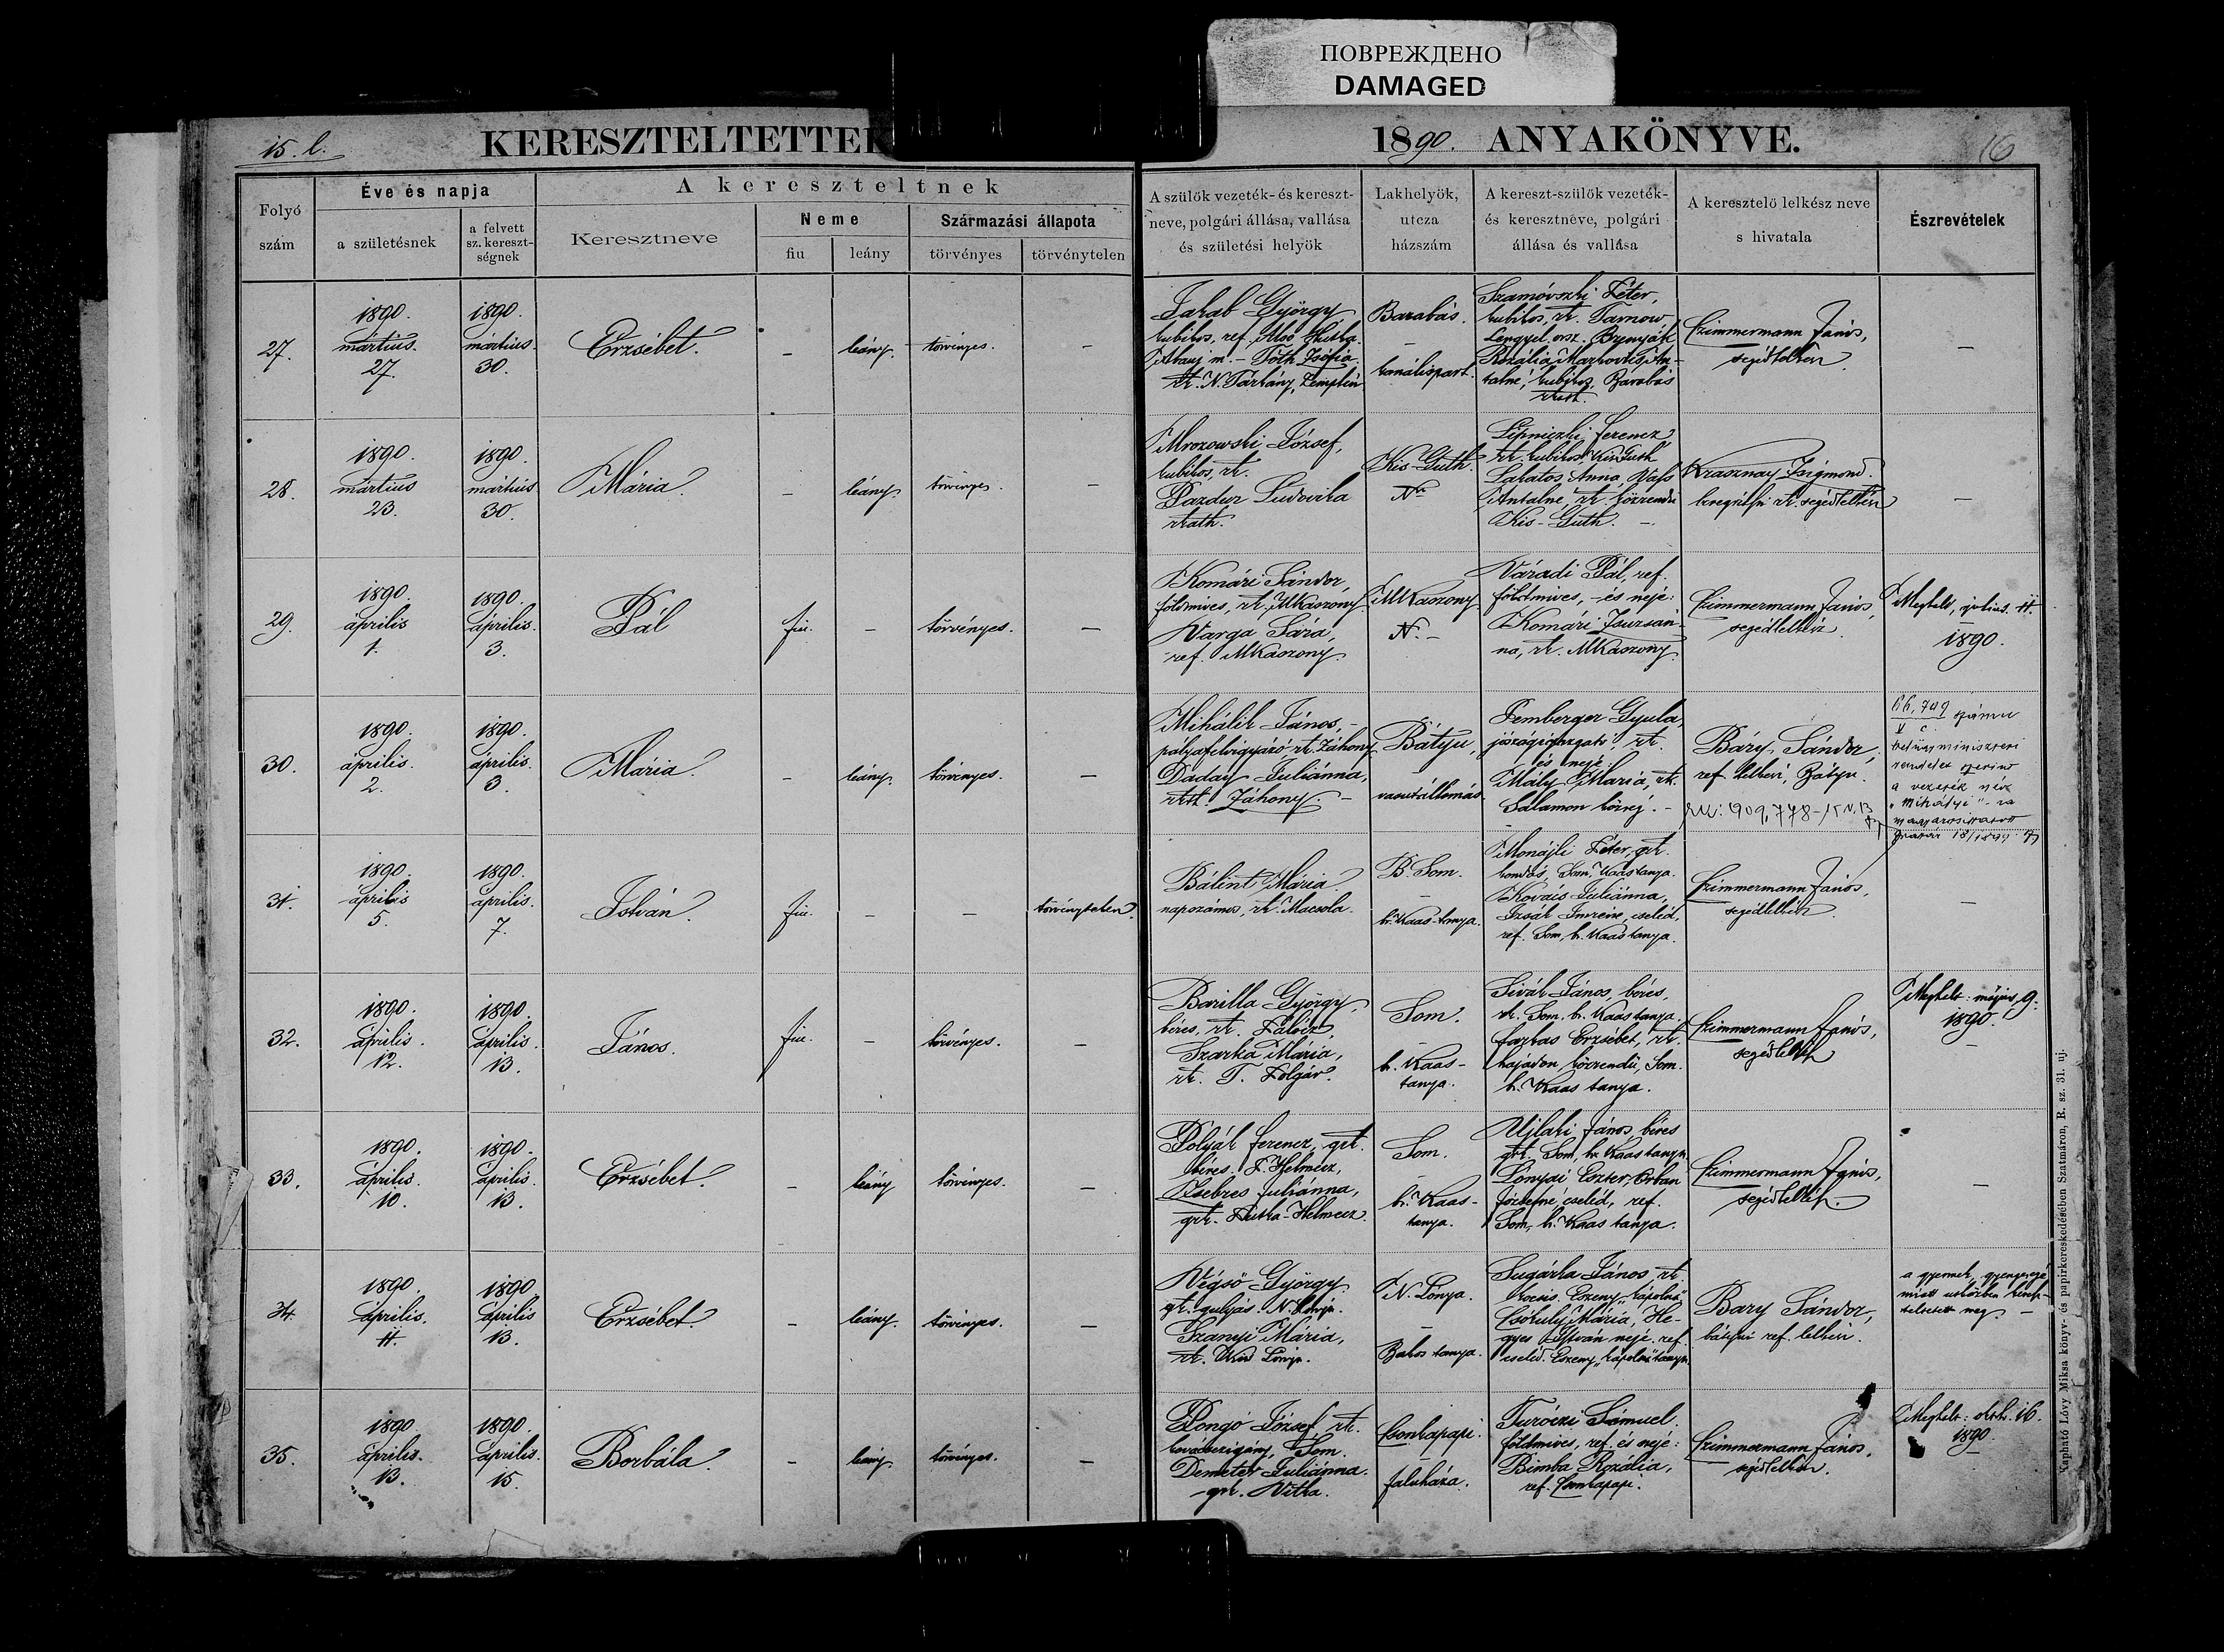 ПОВРЕЖДЕНО
DAMAGED
15. l.
KERESZTELTETTEK
1890. ANYAKÖNYVE.
16
Folyó szám
Éve és napja
a születésnek
a felvett sz. keresztségnek
A kereszteltnek
Keresztneve
Neme
fiu
leány
Származási állapota
törvényes
törvénytelen
A szülők vezeték- és keresztneve, polgári állása, vallása és születési helyök
Lakhelyök, utcza házszám
A kereszt-szülők vezeték- és keresztneve, polgári állása és vallása
A keresztelő lelkész neve s hivatala
Észrevételek
27.
1890. mártius. 27.
1890. mártius. 30.
Erzsébet.
–
leány.
törvényes.
–
Jakab György
kubikos, ref. Alsó
Abauj m. – Tóth Zsófia
rk. N. Tárkány, Zemplén
Barabás.
–
kanálispart.
Szamóvszki Péter,
kubikos, rk. Tarnow
Lengyel orsz.
Rozália, Markovits An-
talné, kubikos, Barabás
Czimmermann János,
segédlelkész
–
28.
1890. mártius 23.
1890. martius 30.
Mária.
–
leány.
törvényes.
–
Mrozowski József,
kubikos, rk.
Pazdur Ludovika
rkath.
Kis-Guth.
Nr.
Lipniczki Ferencz,
rk. kubikos Kis Guth
Lakatos Anna, Vass
Antalné, rk. közrendü
Kis-Guth. –
Krasznay Zsigmond
beregrákosi rk. segédlelkész
–
29.
1890. április 1.
1890. április. 3.
Pál
fiu.
–
törvényes.
–
Komári Sándor,
földmives, rk. MKaszony
Varga Sára,
ref. MKaszony.
MKaszony
N. –
Váradi Pál, ref.
földmives, – és neje:
Komári Zsuzsán-
na, rk. MKaszony.
Czimmermann János,
segédlelkész.
Meghalt, julius. 11.
1890.
30.
1890. április. 2.
1890. április. 3.
Mária.
–
leány.
törvényes.
–
Mihálik János, –
pályafelvigyázó rk. Záhony
Daday Juliánna,
rkt. Záhony. –
Bátyu,
–
vasutállomás.
Femberger Gyula,
jószágigazgató, rk.
és neje
Mály Mária, rk.
Salamon közsg. –
Báry Sándor,
ref. lelkész, Bátyu.
909,778
66,709 számu
belügyminiszteri
rendelet szerint
a vezeték név
"Mihályi"-ra
magyarosittatott
31.
1890. április 5.
1890. április. 7.
István.
fiu.
–
–
törvénytelen.
Bálint Mária
napszámos, rk. Macsola.
B. Som.
–
b. Kaas-tanya.
Monájli Péter, grk.
kondás, Som, Kaas tanya.
Kovács Juliánna,
Izsák Imréné, cseléd,
ref. Som, b. Kaas tanya.
Czimmermann János,
segédlelkész.
–
32.
1890. április. 12.
1890. április. 13.
János.
fiu.
–
törvényes.
–
Barilla György,
béres, rk. Pálócz,
Szarka Mária,
rk. T. Polgár.
Som.
–
b. Kaas-
tanya.
Sivák János, béres,
rk. Som, b. Kaas tanya.
Farkas Erzsébet, rk.
hajadon, közrendü, Som.
b. Kaas tanya.
Czimmermann János,
segédlelkész
Meghalt: május, 9.
1890.
–
33.
1890. április. 10.
1890. április. 13.
Erzsébet.
–
leány
törvényes.
–
Pólyák Ferencz, grk.
béres. K. Helmecz,
Csebres Juliánna,
grk. Helmecz.
Som.
–
b. Kaas-
tanya.
Ujlaki János béres
grk. Som, b. Kaas tanya.
Lónyai Eszter, Orbán
Józsefné, cseléd, ref.
Som, b. Kaas tanya.
Czimmermann János,
segédlelkész.
–
34.
1890. április. 11.
1890. április 13.
Erzsébet.
–
leány.
törvényes.
–
Végső György
gk. gulyás. N. Lónya.
Szanyi Mária,
rk. Kis Lónya.
N. Lónya.
–
Bakos tanya.
Sugárka János, rk.
kocsis. Eszeny, "kápolna"
Csókuly Mária, He-
gyes István neje. ref.
cseléd. Eszeny "kápolna" tanya.
Bary Sándor,
bátyui ref. lelkész.
a gyermek gyengesége
miatt utközben keresz-
teltetett meg. –
35.
1890. április. 13.
1890. április. 15.
Borbála.
–
leány.
törvényes.
–
Pongó József, rk.
kovácsczigány, Som.
Demeter Juliánna.
grk. Vitka.
Csonkapapi.
–
faluháza.
Turóczi Sámuel
földmives, ref. és neje:
Bimba Rozália,
ref. Csonkapapi.
Czimmermann János,
segédlelkész.
Meghalt: okt. 16.
1890.
Kapható Lővy Miksa könyv- és papirkereskedésében Szatmáron, R. sz. 31. uj.